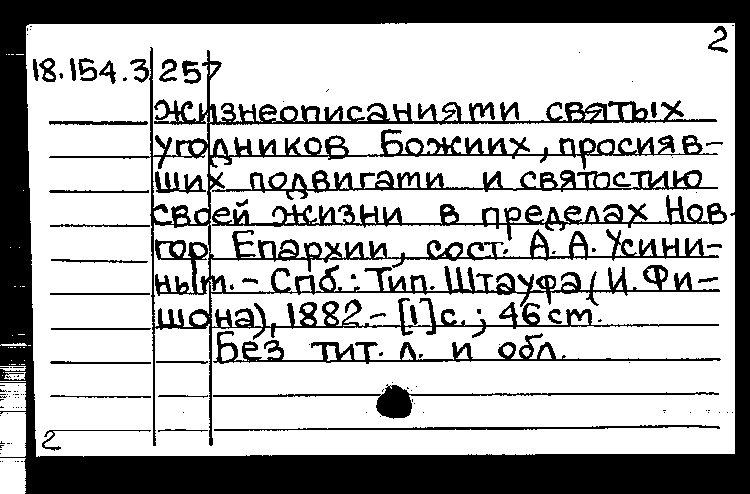 2
18.154.3 257
жизнеописаниями святых
угодников Божиих, просияв-
ших подвигами и святостию
своей жизни в пределах Нов-
гор. Епархии, сост. А. А. Усини-
ным. - Спб.: Тип. Штауфа (И. Фи-
шона), 1882. - [1] с.; 46 см.
Без тит. л. и обл.
2